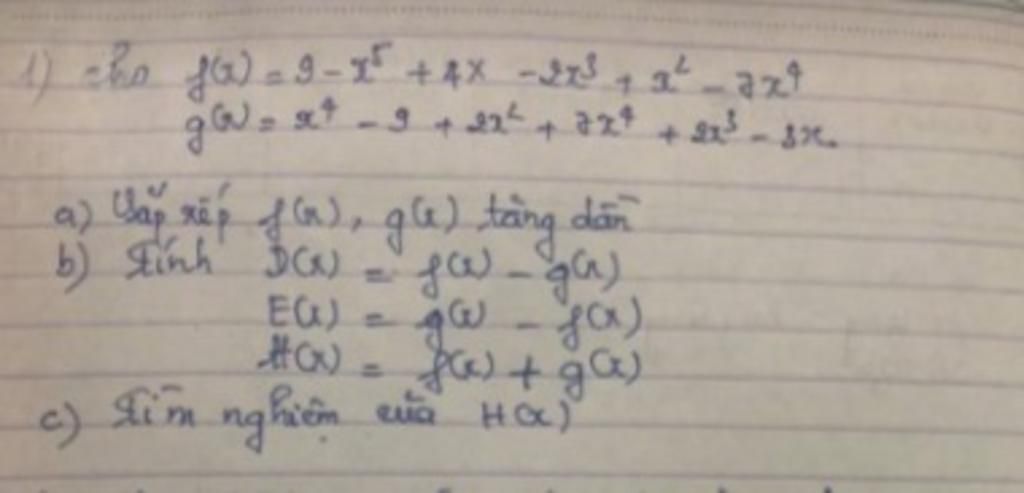 1) Cho f(x) = 9 - x⁵ + 4x - 2x³ + x² - 7x⁴
g(x) = x⁴ - 9 + 2x² + 7x⁴ + 2x³ - 3x.
a) Sắp xếp f(x), g(x) tăng dần
b) Tính D(x) = f(x) - g(x)
E(x) = g(x) - f(x)
H(x) = f(x) + g(x)
c) Tìm nghiệm của H(x)